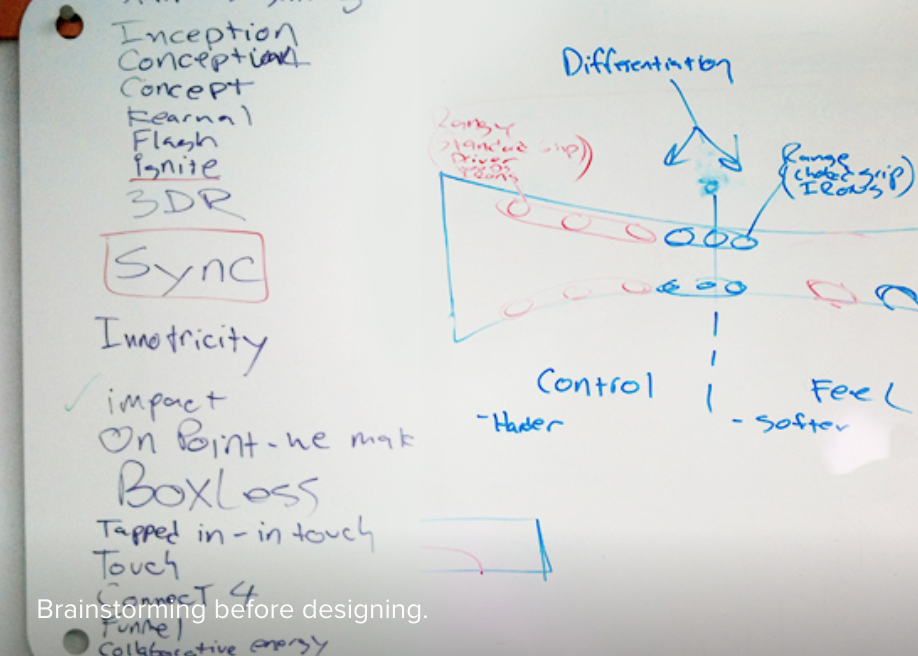 Inception
Conception
Concept
Kearnal
Flash
Ignite
3DR
Sync
Innotricity
impact
On Point - we mak
BoxLess
Tapped in - in touch
Touch
Connect 4
Funnel
Collaborative energy
Differentiation
Range
(Standard grip)
Driver
Irons
Range
(choked grip)
IRONS
Control
- Harder
Feel
- Softer
Brainstorming before designing.